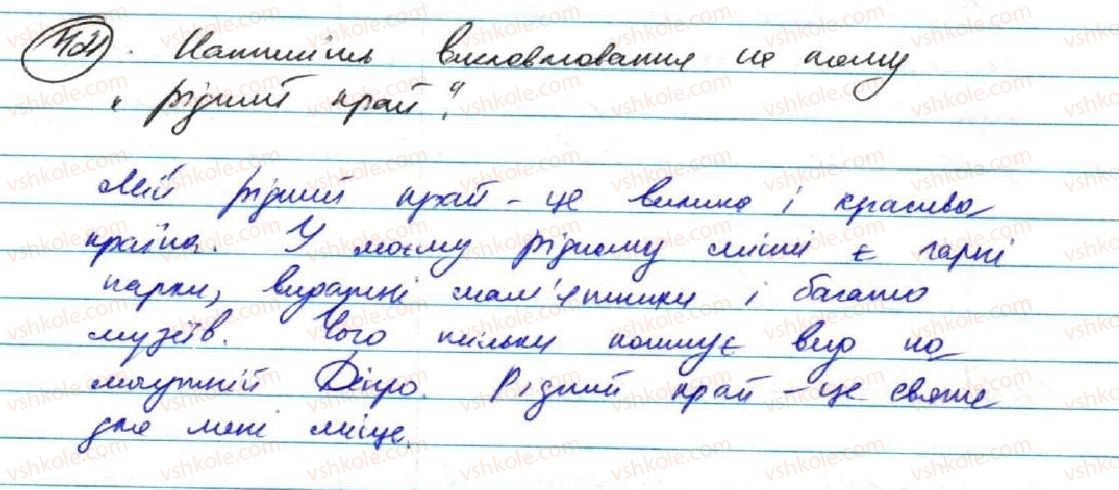 421. Напишіть висловлювання на тему
„рідний край".
Мій рідний край – це велика і красива
країна. У моєму рідному місті є гарні
парки, виразні пам'ятники і багато
музеїв. Чого тільки коштує вид на
могутній Дніпро. Рідний край – це святе
для мені місце.
vshkole.com